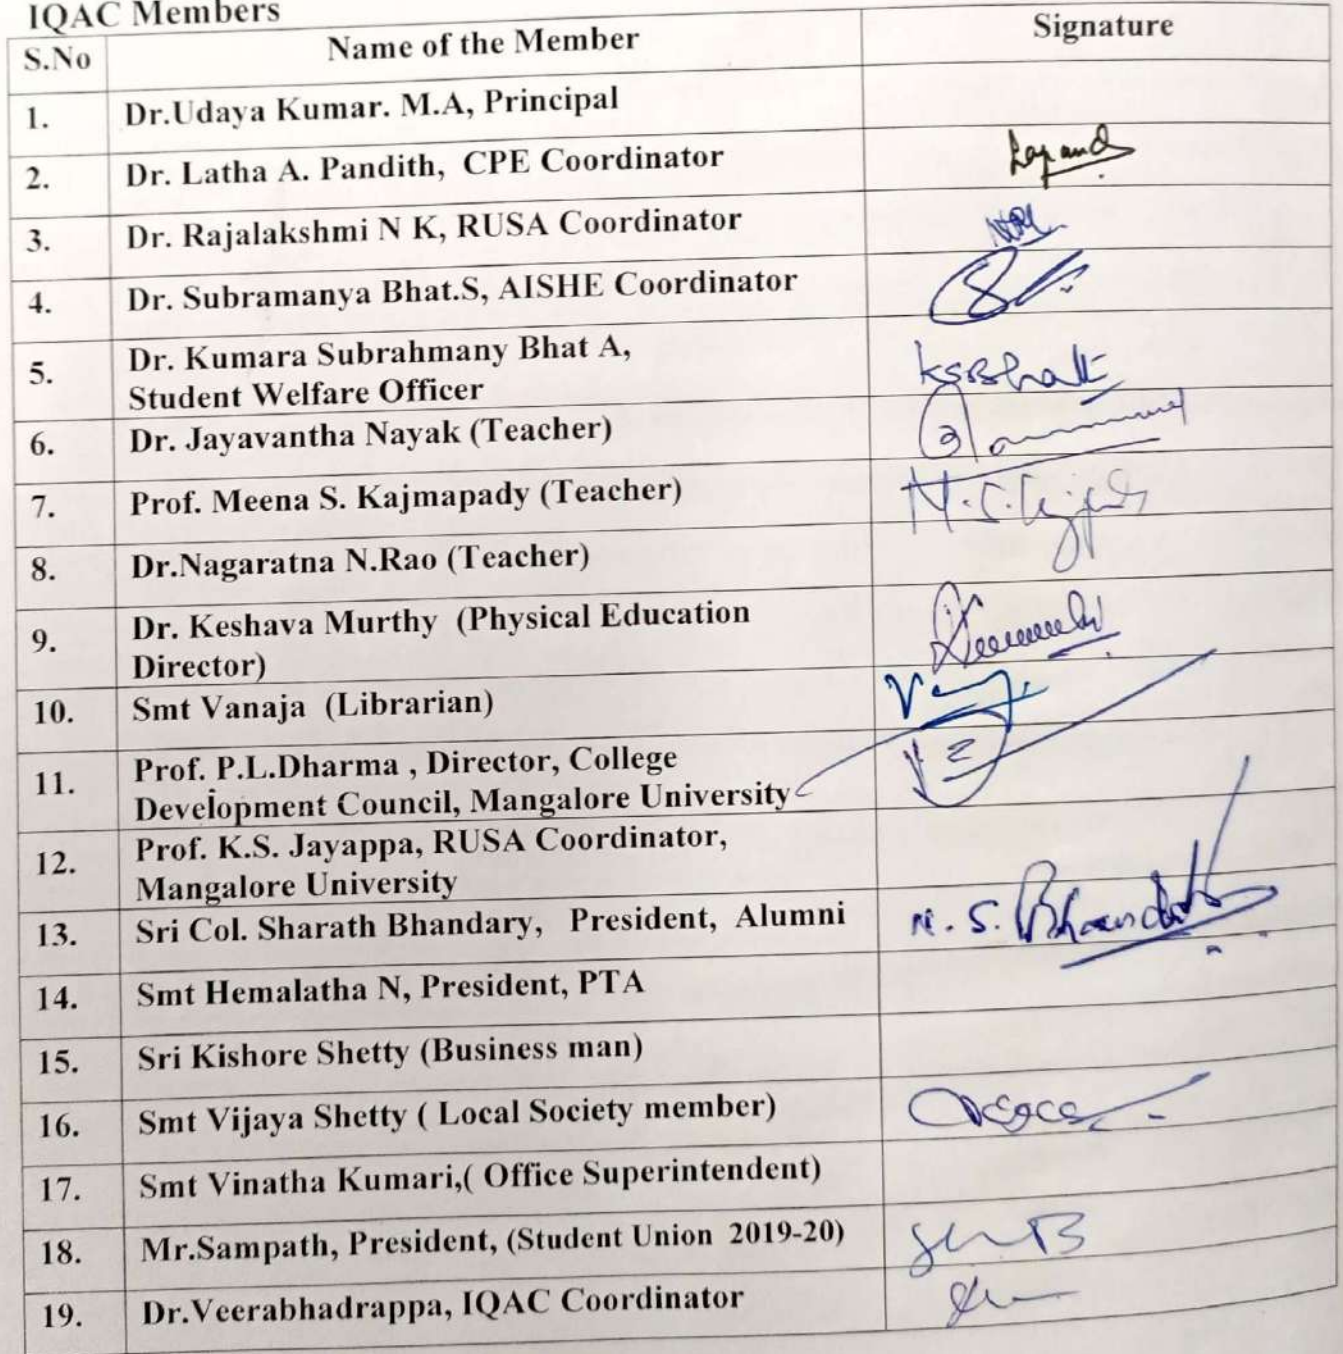 IQAC Members
S.No Name of the Member Signature
1. Dr.Udaya Kumar. M.A, Principal
2. Dr. Latha A. Pandith, CPE Coordinator
3. Dr. Rajalakshmi N K, RUSA Coordinator
4. Dr. Subramanya Bhat.S, AISHE Coordinator
5. Dr. Kumara Subrahmany Bhat A, KSBhatt
Student Welfare Officer
6. Dr. Jayavantha Nayak (Teacher)
7. Prof. Meena S. Kajmapady (Teacher)
8. Dr.Nagaratna N.Rao (Teacher)
9. Dr. Keshava Murthy (Physical Education
Director)
10. Smt Vanaja (Librarian)
11. Prof. P.L.Dharma , Director, College
Development Council, Mangalore University
12. Prof. K.S. Jayappa, RUSA Coordinator,
Mangalore University
13. Sri Col. Sharath Bhandary, President, Alumni N. S. Bhandary
14. Smt Hemalatha N, President, PTA
15. Sri Kishore Shetty (Business man)
16. Smt Vijaya Shetty ( Local Society member)
17. Smt Vinatha Kumari,( Office Superintendent)
18. Mr.Sampath, President, (Student Union 2019-20)
19. Dr.Veerabhadrappa, IQAC Coordinator